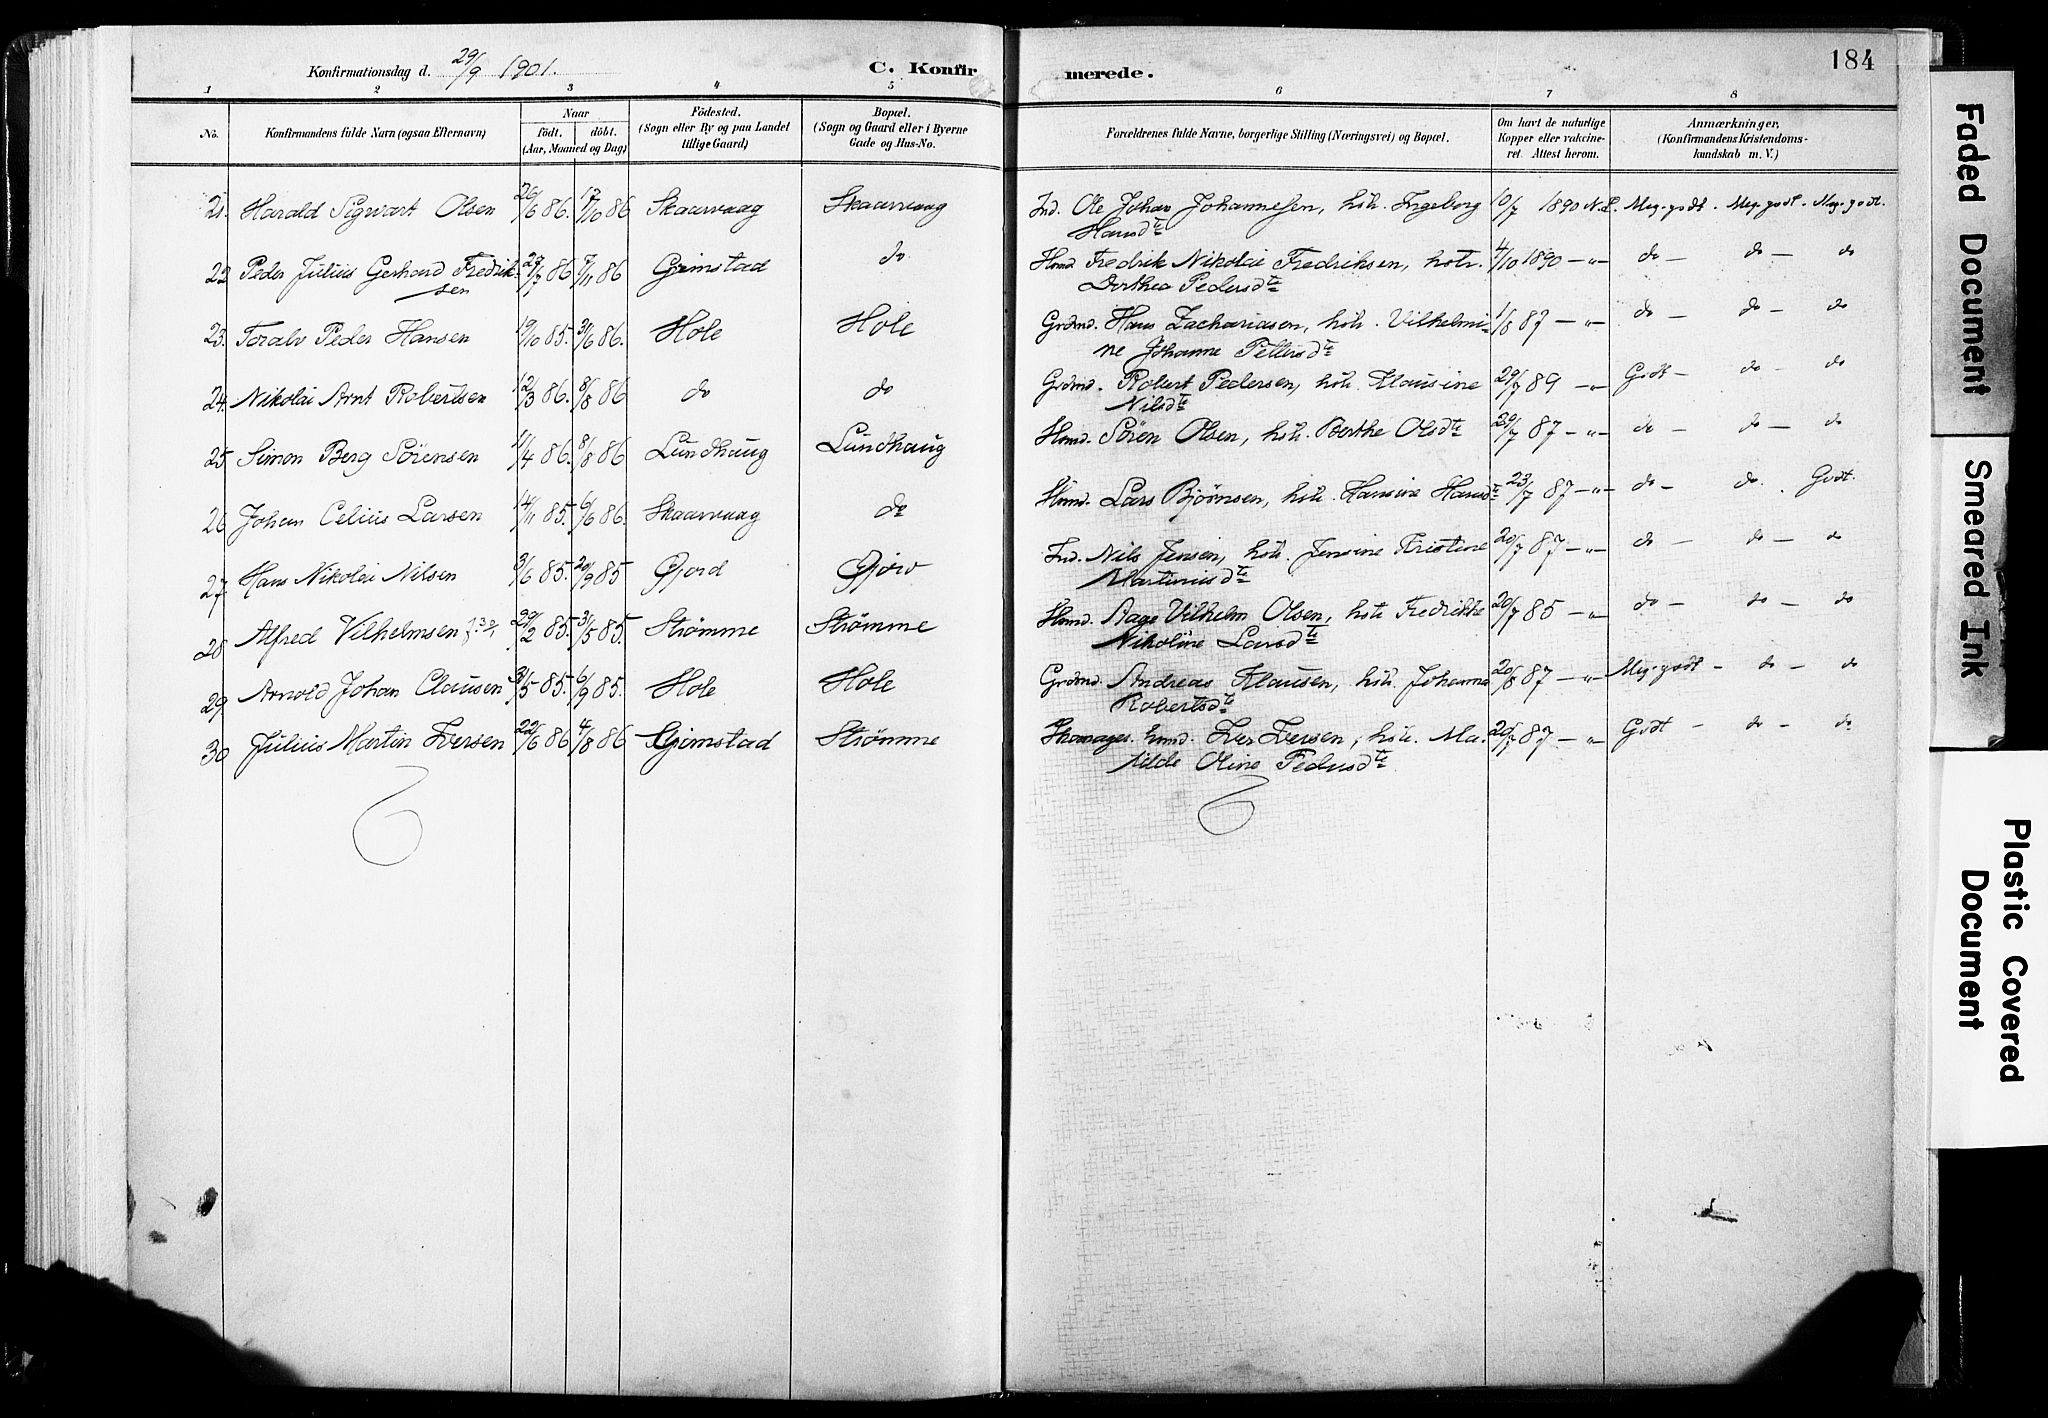 Konfirmationsdag d. 29/9 1901. C. Konfirmerede. 184
1 2 3 4 5 6 7 8
No. Konfirmandens fulde Navn (ogsaa Efternavn) Naar födt, döbt. (Aar, Maaned og Dag) Födested. (Sogn eller By og paa Landet tillige Gaard) Bopæl. (Sogn og Gaard eller i Byerne Gade og Hus-No. Forældrenes fulde Navne, borgerlige Stilling (Næringsvei) og Bopæl. Om havt de naturlige Kopper eller vakcineret. Attest herom. Anmærkninger, (Konfirmandens Kristendomskundskab m. V.)
21. Harald Sigvart Olsen 26/6 86. 17/10 86 Skaarvaag Skaarvaag Ind. Ole Johan Johannesen, hstr. Ingeborg 10/7 1890 N.L. Meg. godt. Meg. godt. Meg. godt.
Hansdtr
22 Peder Julius Gerhard Fredriksen 27/7 86 7/11 86 Grimstad do Hsmd Fredrik Nikolai Fredriksen, hstr. 4/10 1890 — " do — do — do
Dorthea Pedersdtr
23. Toralv Peder Hansen 19/10 85. 3/6 86. Hole Hole Grdmd. Hans Zachariasen, hstr. Vilhelmi- 1/8 87 — " do — do — do
ne Johanne Pettersdtr
24. Nikolai Arnt Robertsen 12/3 86. 8/8 86 do do Grdmd. Robert Pedersen, hstr. Klausine 29/7 89 — " Godt — do — do
Nilsdtr
25 Simon Berg Sörensen 11/4 86. 8/8 86 Lundhaug Lundhaug Hsmd. Sören Olsen, hstr. Berthe Olsdtr 20/7 87 — " do — do — do
26 Johan Celius Larsen 14/11 85. 6/6 86. Skaarvaag do Hsmd. Lars Bjørnsen, hstr. Hansine Hansdtr 23/7 87 — " do — do. Godt.
27. Hans Nikolai Nilsen 3/6 85. 20/9 85 Gjord Gjörv Ind. Nils Jensen, hstr. Jensine Kristine 20/7 87 — " do — do — do
Martinusdtr
28 Alfred Vilhelmsen 27/2 85. 31/5 85. Strømme Strømme Hsmd. Aage Vilhelm Olsen, hstr Fredrikke 20/7 85 — " do — do — do
Nikoline Larsdtr
29. Arnold Johan Clausen 31/5 85. 6/9 85. Hole Hole Grdmd. Andreas Klausen, hstr. Johanna 20/8 87 — " Meg. godt — do — do
Robertsdtr
30 Julius Martin Iversen 22/6 86 4/8 86 Grimstad Strømme Skomager. hsmd. Iver Iversen, hstr. Ma- 20/7 87 — " Godt — do — do
tilde Oline Pedersdtr
Faded Document
Smeared Ink
Plastic Covered
Document